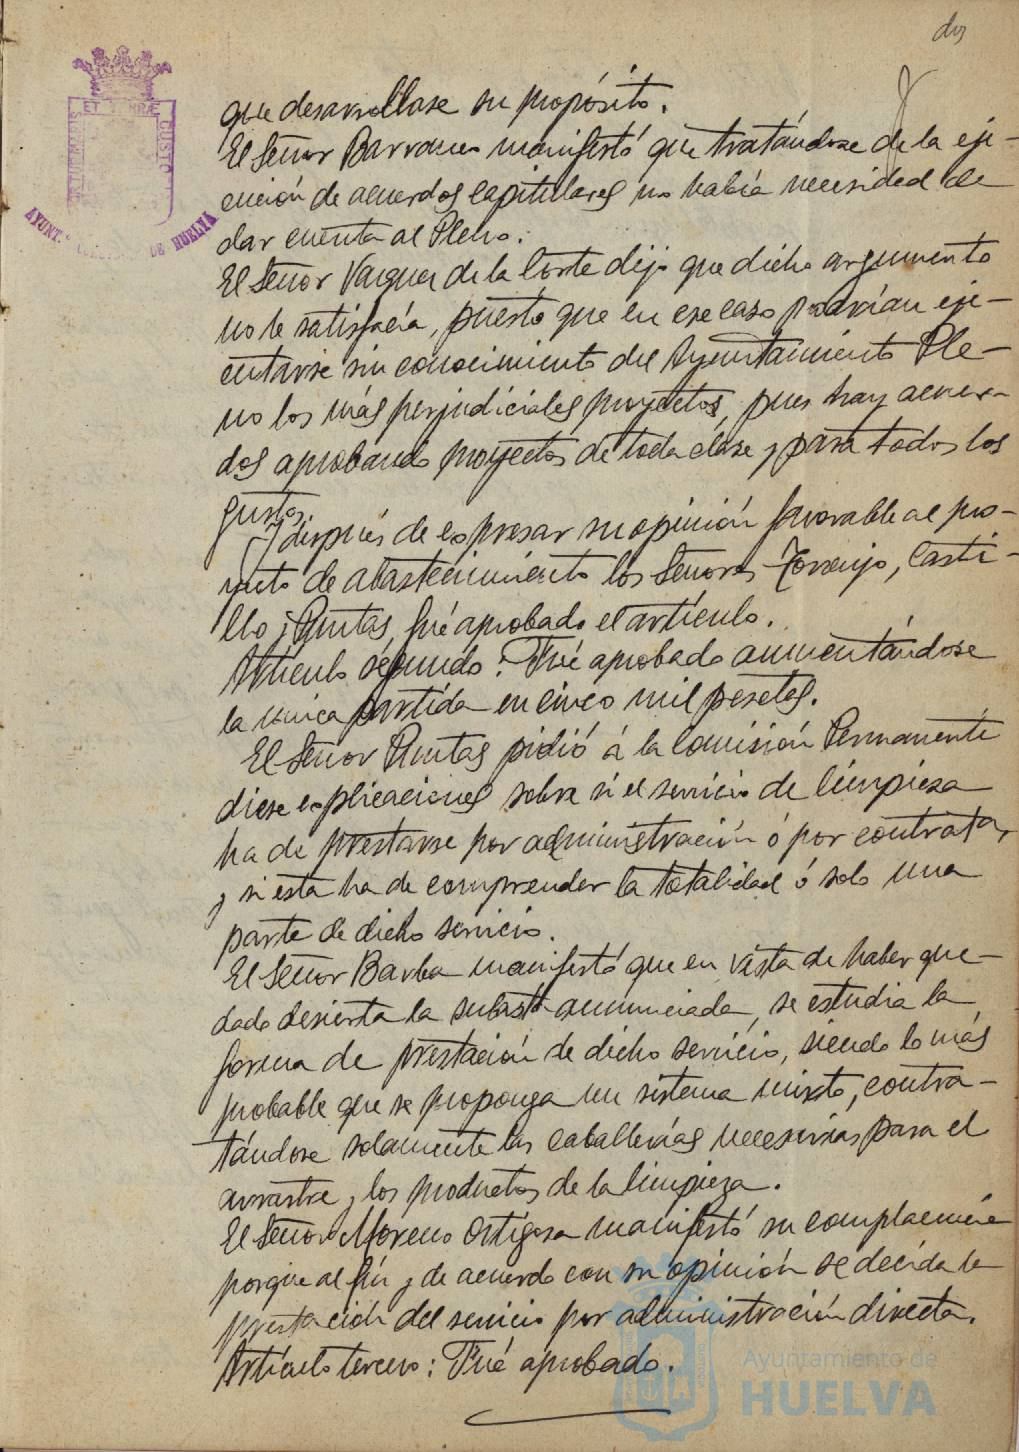 dos
que desarrollase su propósito.
El Señor Barranco manifestó que tratándose de la eje-
cución de acuerdos capitulares no había necesidad de
dar cuenta al Pleno.
El Señor Vazquez de la Corte dijo que dicho argumento
no le satisfacía, puesto que en ese caso podrían eje-
cutarse sin conocimiento del Ayuntamiento Ple-
no los más perjudiciales proyectos, pues hay acuer-
dos aprobando proyectos de toda clase y para todos los
gustos.
Y después de expresar su opinión favorable al pro-
yecto de abastecimiento los Señores Toronjo, Casti-
llo y Puntas, fué aprobado el artículo.
Artículo segundo: Fué aprobado aumentándose
la única partida en cinco mil pesetas.
El Señor Puntas pidió á la Comisión Permanente
diese explicaciones sobre si el servicio de limpieza
ha de prestarse por administración ó por contrata,
y si esta ha de comprender la totalidad ó solo una
parte de dicho servicio.
El Señor Barba manifestó que en vista de haber que-
dado desierta la subasta anunciada, se estudia la
forma de prestación de dicho servicio, siendo lo más
probable que se proponga un sistema mixto, contra-
tándose solamente las caballerías necesarias para el
arrastre y los productos de la limpieza.
El Señor Moreno Ortigosa manifestó su complacencia
porque al fin y de acuerdo con su opinión se decida la
prestación del servicio por administración directa.
Artículo tercero: Fué aprobado.
AYUNT. DE HUELVA
Ayuntamiento de
HUELVA